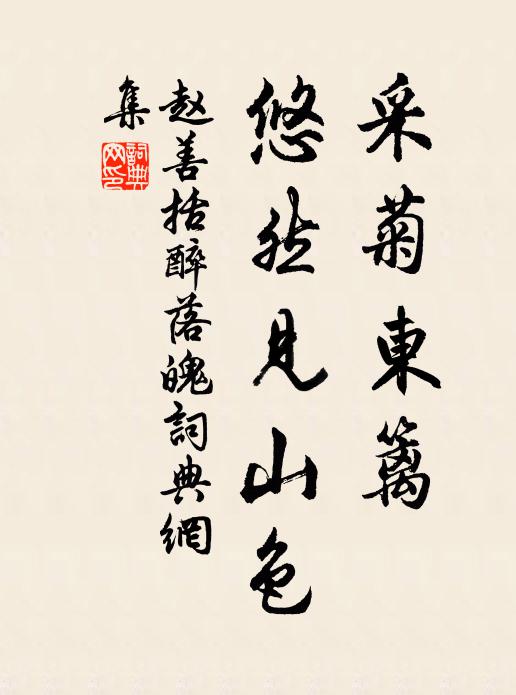 采菊東籬
悠然見山色
赵善括醉落魄詞典網
集
詞典
网印